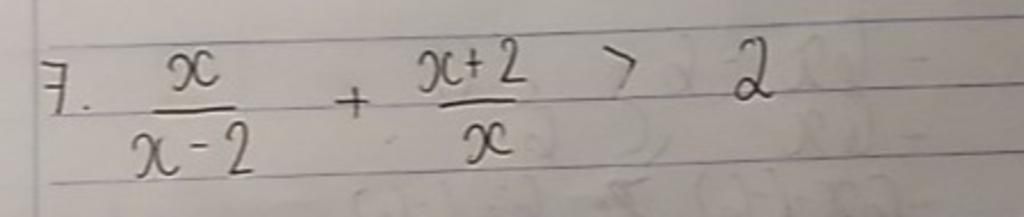 7. \frac{x}{x-2} + \frac{x+2}{x} > 2